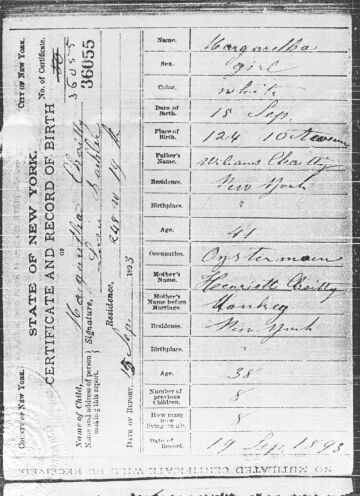 CITY OF NEW YORK.
No. of Certificate.
36055
36055
STATE OF NEW YORK.
CERTIFICATE AND RECORD OF BIRTH
OF
Name of Child, Margaretha
Name and address of person making this report.
Signature,
Residence, 248 W 19 th
DATE OF REPORT, 15 Sep 1893
COUNTY OF NEW YORK.
Name. Margaretha
Sex. girl
Color. white
Date of Birth. 15 Sep.
Place of Birth. 124 10 Avenue
Father's Name. William
Residence. New York
Birthplace. "
Age. 41
Occupation. Oysterman
Mother's Name. Henrietta
Mother's Name before Marriage.
Residence. New York
Birthplace. "
Age. 38
Number of previous Children. 8
How many now living in all. 8
Date of Record. 19 Sep. 1893
NO MUTILATED CERTIFICATE WILL BE RECEIVED.